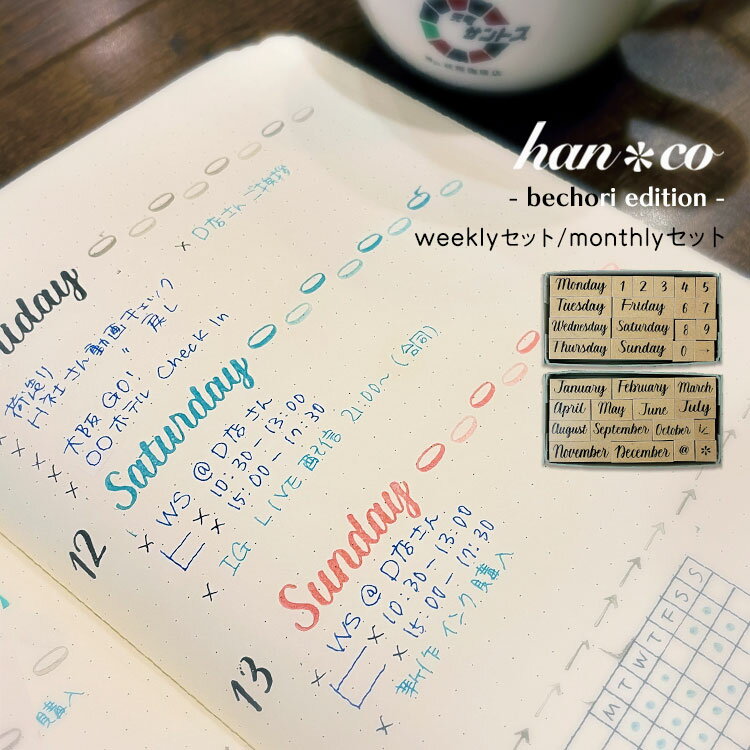 サントス
han*co
- bechori edition -
weeklyセット/monthlyセット
Monday 1 2 3 4 5
Tuesday Friday 6 7
Wednesday Saturday 8 9
Thursday Sunday 0 →
January February March
April May June July
August September October
November December @ *
× D店さん
uday
荷造り
H社さん動画チェック
〃 戻し
大阪 GO!
〇〇ホテル Check In
12
Saturday
× WS @ D店さん
× 10:30-13:00
× 15:00-17:30
× IG. LIVE 配信 21:00~ (合同)
13
Sunday
× WS @ D店さん
× 10:30-13:00
× 15:00-17:30
× 新作インク購入
購入
M T W T F S S